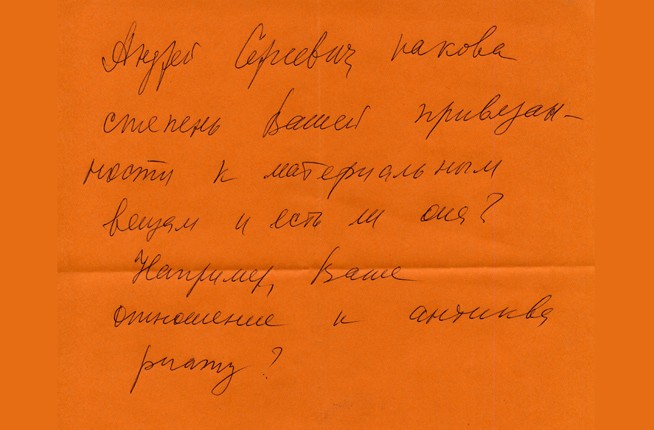 Андрей Сергеевич, какова
степень Вашей привязан-
ности к материальным
вещам и есть ли она?
Например, Ваше
отношение к антиква
риату?